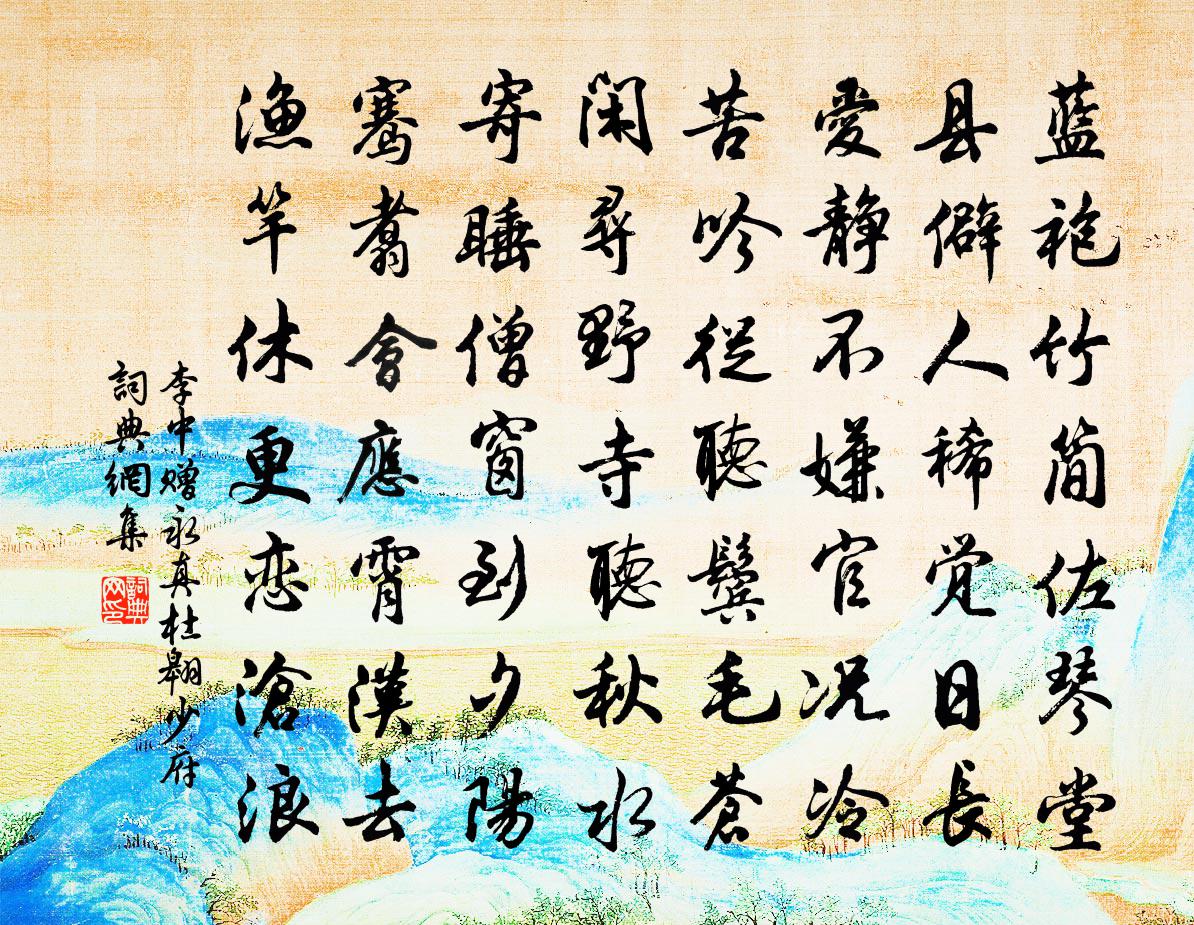 藍袍竹简佐琴堂
县僻人稀觉日長
愛靜不嫌官况冷
苦吟從聽鬢毛蒼
闲尋野寺聽秋水
寄睡僧窗到夕陽
骞翥會應霄漢去
漁竿休更恋滄浪
李中赠永真杜翱少府
詞典網集
詞典网印